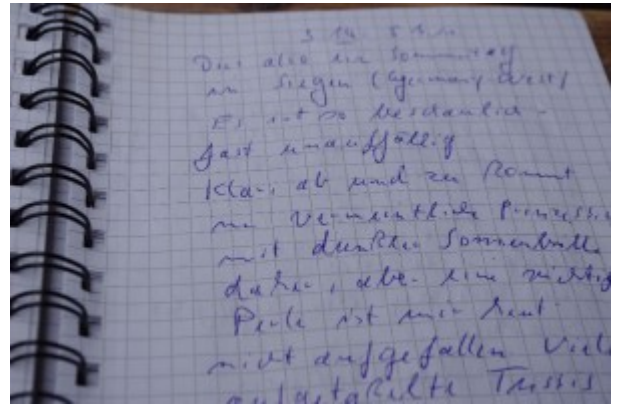 Das also ein Sommertag
in Siegen (Germany West)
Es ist so beschaulich -
fast unauffällig
Klar, ab und zu kommt
ne vermeintliche Prinzessin
mit dunkler Sonnenbrille
daher, aber eine richtig
Perle ist mir heut
nicht aufgefallen Viel
aufgetakelte Tussis